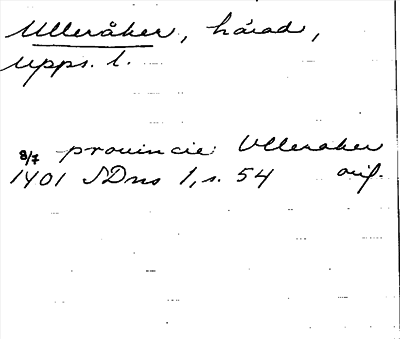 Ulleråker, härad,
Upps. l.
8/7 provincie Vlleraker
1401 SDns 1, s. 54 orig.